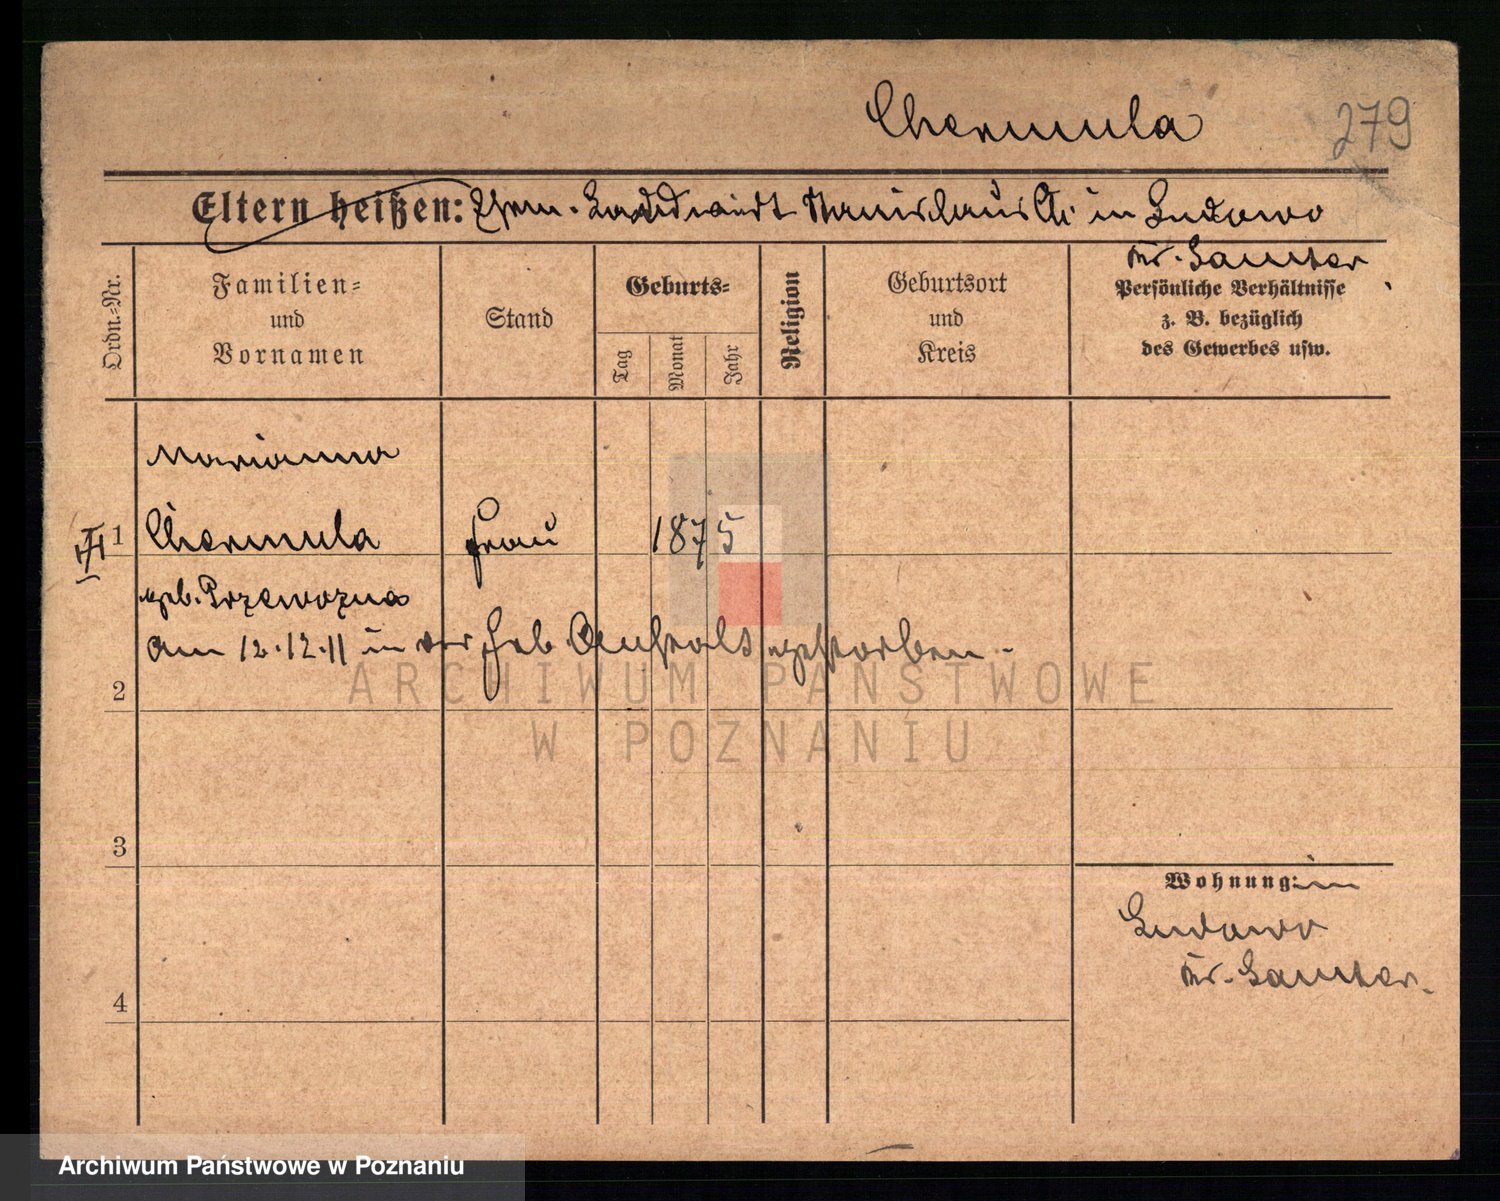 Chermula 279
Eltern heißen: Ehem. Landwirt Stanislaus Ch. in Ludowo
Kr. Samter
Ordn.-Nr.
Familien-
und
Vornamen
Stand
Geburts-
Tag
Monat
Jahr
Religion
Geburtsort
und
Kreis
Persönliche Verhältnisse
z. B. bezüglich
des Gewerbes usw.
Marianna
1 Chermula Frau 1875
geb. Przewozna
am 12.12.11 in der Heb. Anstalt gestorben.
2
3
4
Wohnung: in
Ludowo
Kr. Samter.
ARCHIWUM PAŃSTWOWE
W POZNANIU
Archiwum Państwowe w Poznaniu